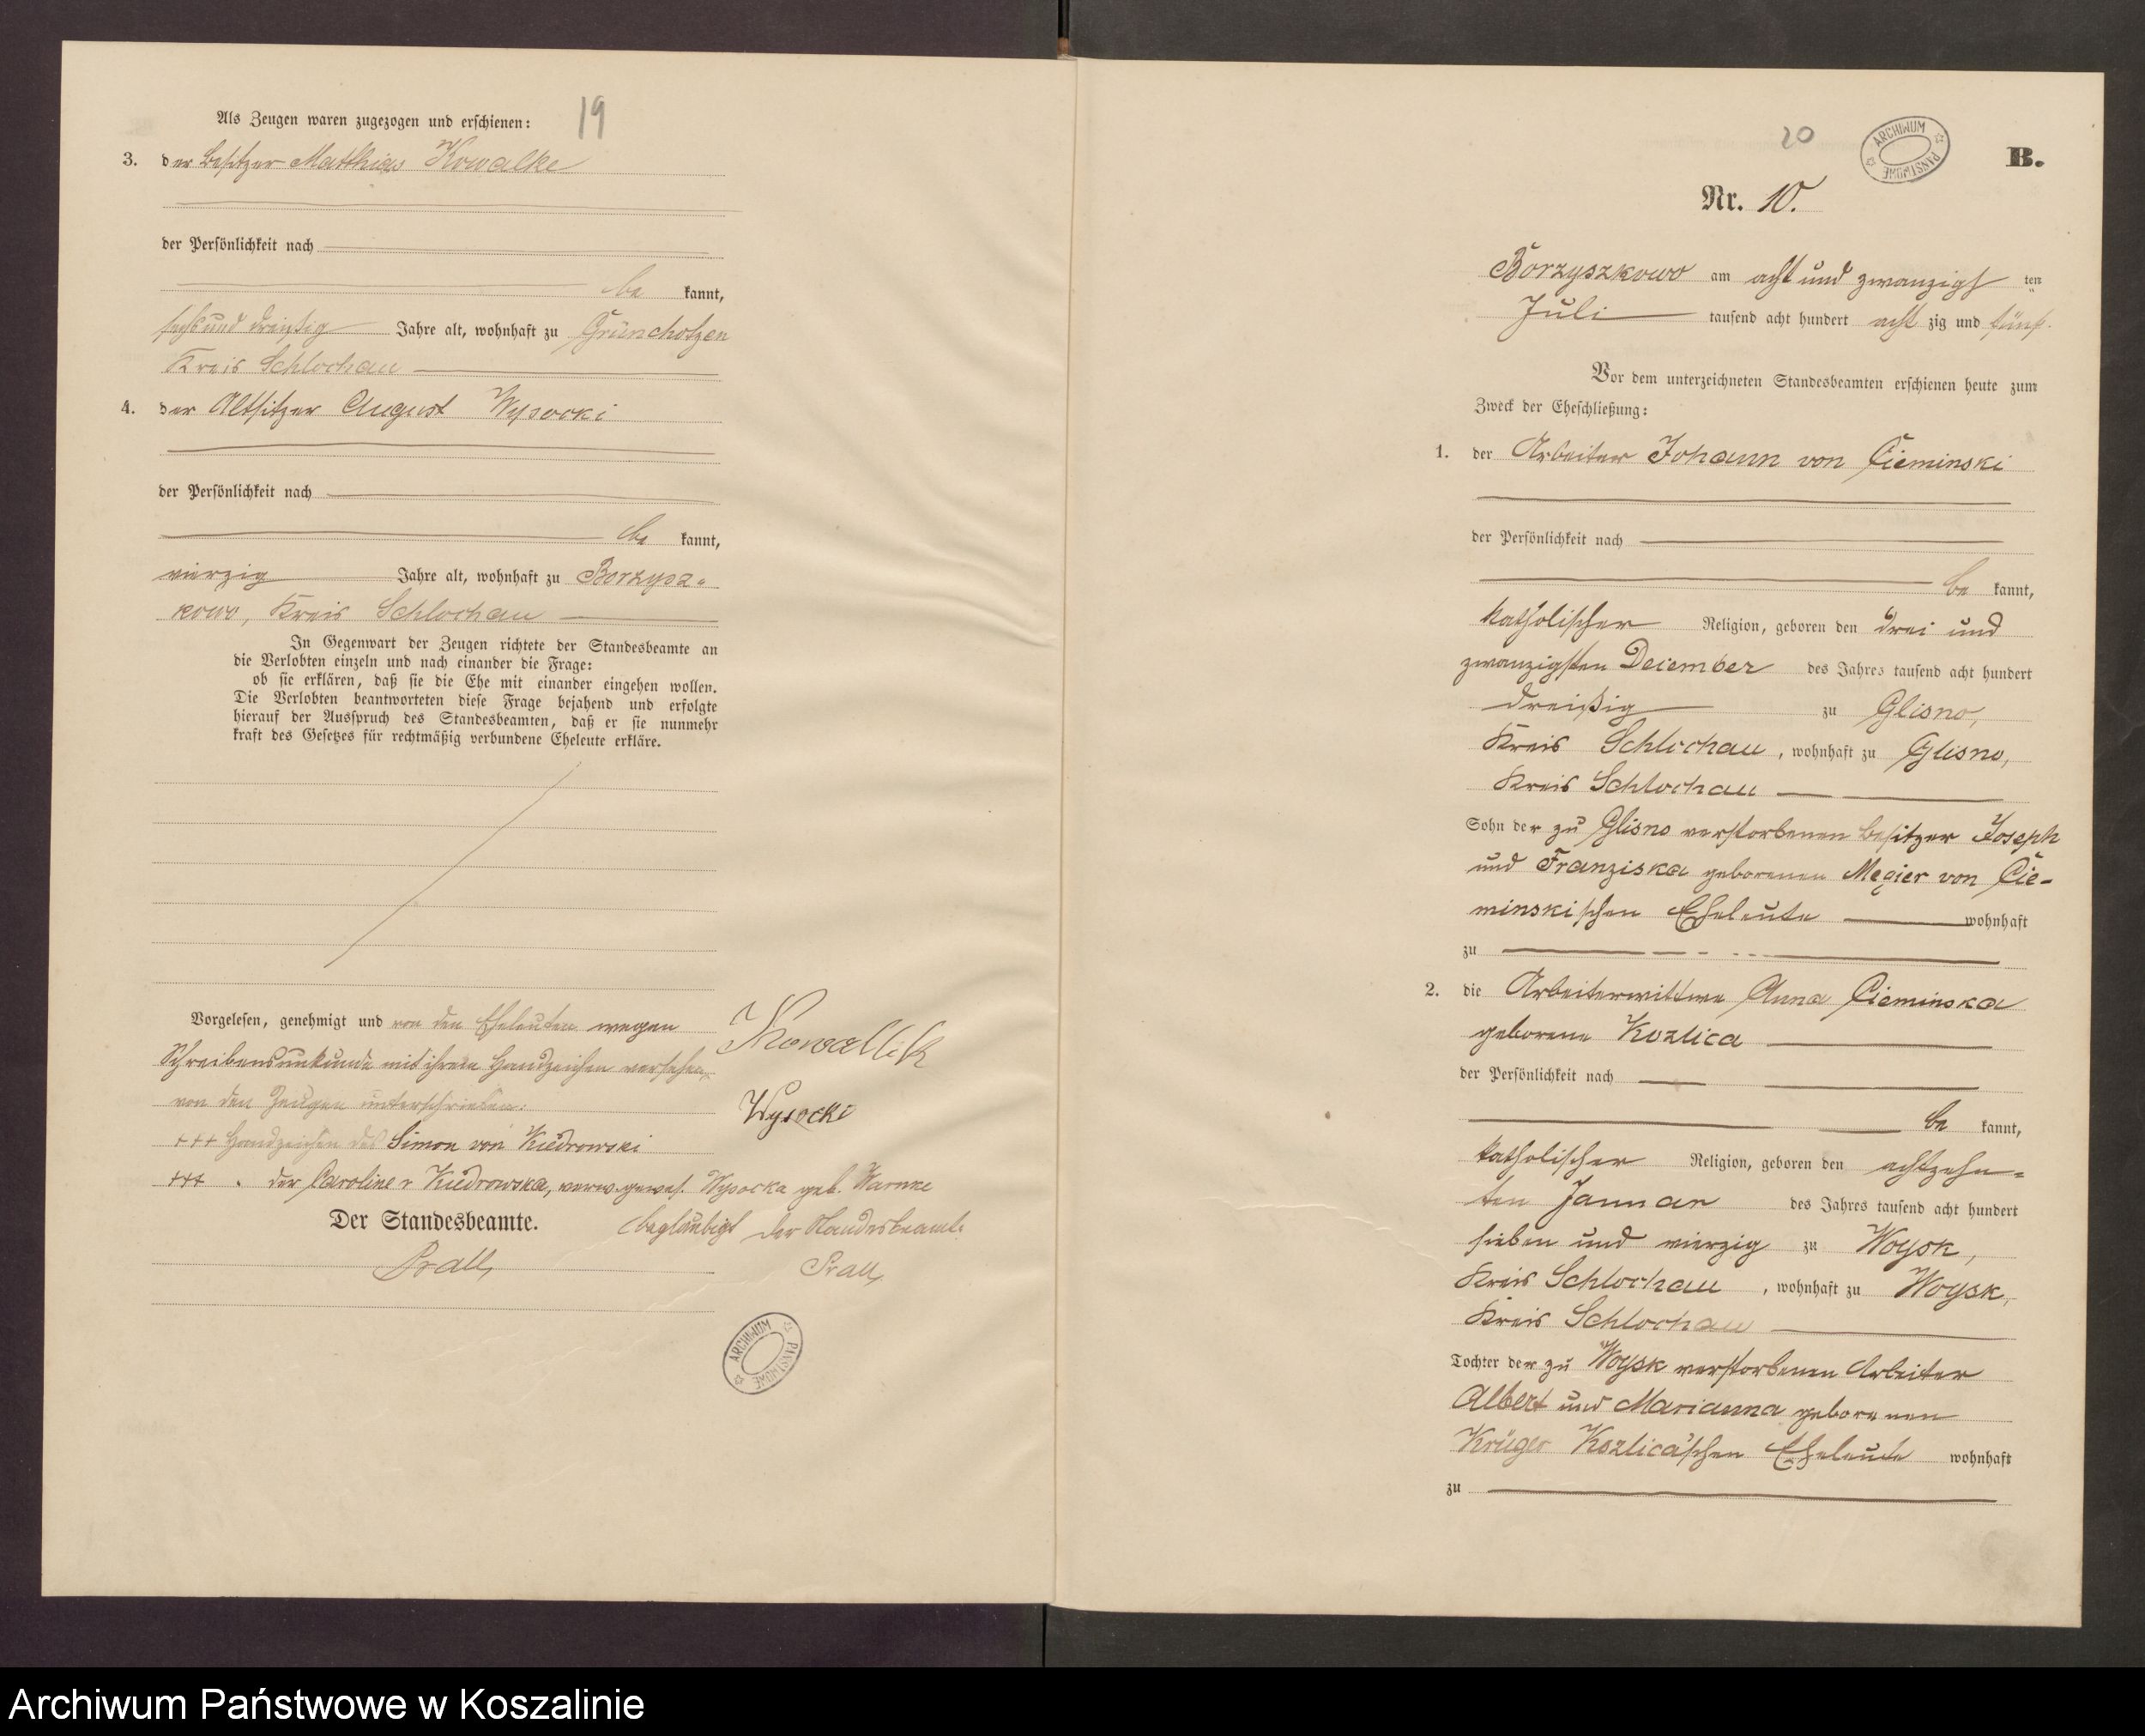 19
Als Zeugen waren zugezogen und erschienen:
3. der Besitzer Matthias Kowalke
der Persönlichkeit nach
be kannt,
sechs und dreißig Jahre alt, wohnhaft zu Grünchotzen
Kreis Schlochau
4. der Altsitzer August Wysocki
der Persönlichkeit nach
be kannt,
vierzig Jahre alt, wohnhaft zu Borzysz-
kowo, Kreis Schlochau
In Gegenwart der Zeugen richtete der Standesbeamte an
die Verlobten einzeln und nach einander die Frage:
ob sie erklären, daß sie die Ehe mit einander eingehen wollen.
Die Verlobten beantworteten diese Frage bejahend und erfolgte
hierauf der Ausspruch des Standesbeamten, daß er sie nunmehr
kraft des Gesetzes für rechtmäßig verbundene Eheleute erkläre.
Vorgelesen, genehmigt und von den Eheleuten wegen
Schreibensunkunde mit ihrem Handzeichen versehen,
von den Zeugen unterschrieben:
+++ Handzeichen des Simon von Kiedrowski
+++ " der Caroline v Kiedrowska, verw. gewes. Wysocka geb. Warnke
Kowallik
Wysocki
Der Standesbeamte.
beglaubigt der Standesbeamte
Prall
Prall
ARCHIWUM PAŃSTWOWE
20
ARCHIWUM PAŃSTWOWE
B.
Nr. 10.
Borzyszkowo am acht und zwanzigs ten
Juli tausend acht hundert acht zig und fünf.
Vor dem unterzeichneten Standesbeamten erschienen heute zum
Zweck der Eheschließung:
1. der Arbeiter Johann von Cieminski
der Persönlichkeit nach
be kannt,
katholischer Religion, geboren den drei und
zwanzigsten Dezember des Jahres tausend acht hundert
dreißig zu Glisno,
Kreis Schlochau, wohnhaft zu Glisno,
Kreis Schlochau
Sohn der zu Glisno verstorbenen Besitzer Joseph
und Franziska geborenen Megier von Cie-
minskischen Eheleute wohnhaft
zu
2. die Arbeiterwittwe Anna Cieminska
geborene Kozlica
der Persönlichkeit nach
be kannt,
katholischer Religion, geboren den achtzehn-
ten Januar des Jahres tausend acht hundert
sieben und vierzig zu Woysk,
Kreis Schlochau, wohnhaft zu Woysk,
Kreis Schlochau
Tochter der zu Woysk verstorbenen Arbeiter
Albert und Marianna geborenen
Krüger Kozlica'schen Eheleute wohnhaft
zu
Archiwum Państwowe w Koszalinie